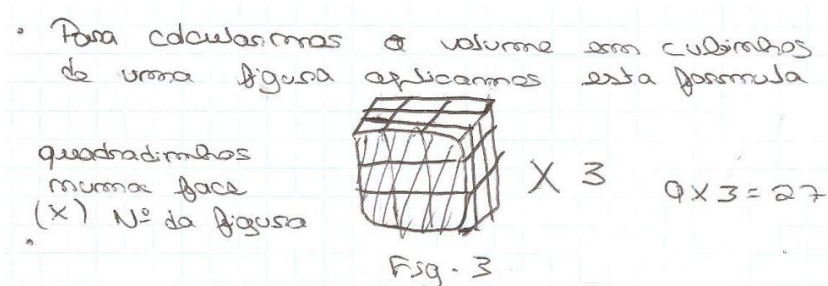 • Para calcularmos o volume em cubinhos
de uma figura aplicarmos esta formula
quadradinhos
numa face
(X) Nº da figura
X 3
9X3=27
Fig. 3